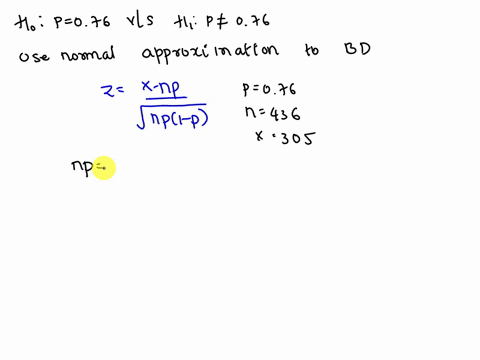 H₀: P=0.76 v/s H₁: P≠0.76
Use normal approximation to BD
z= x-np / √np(1-p)
p=0.76
n=436
x=305
np=